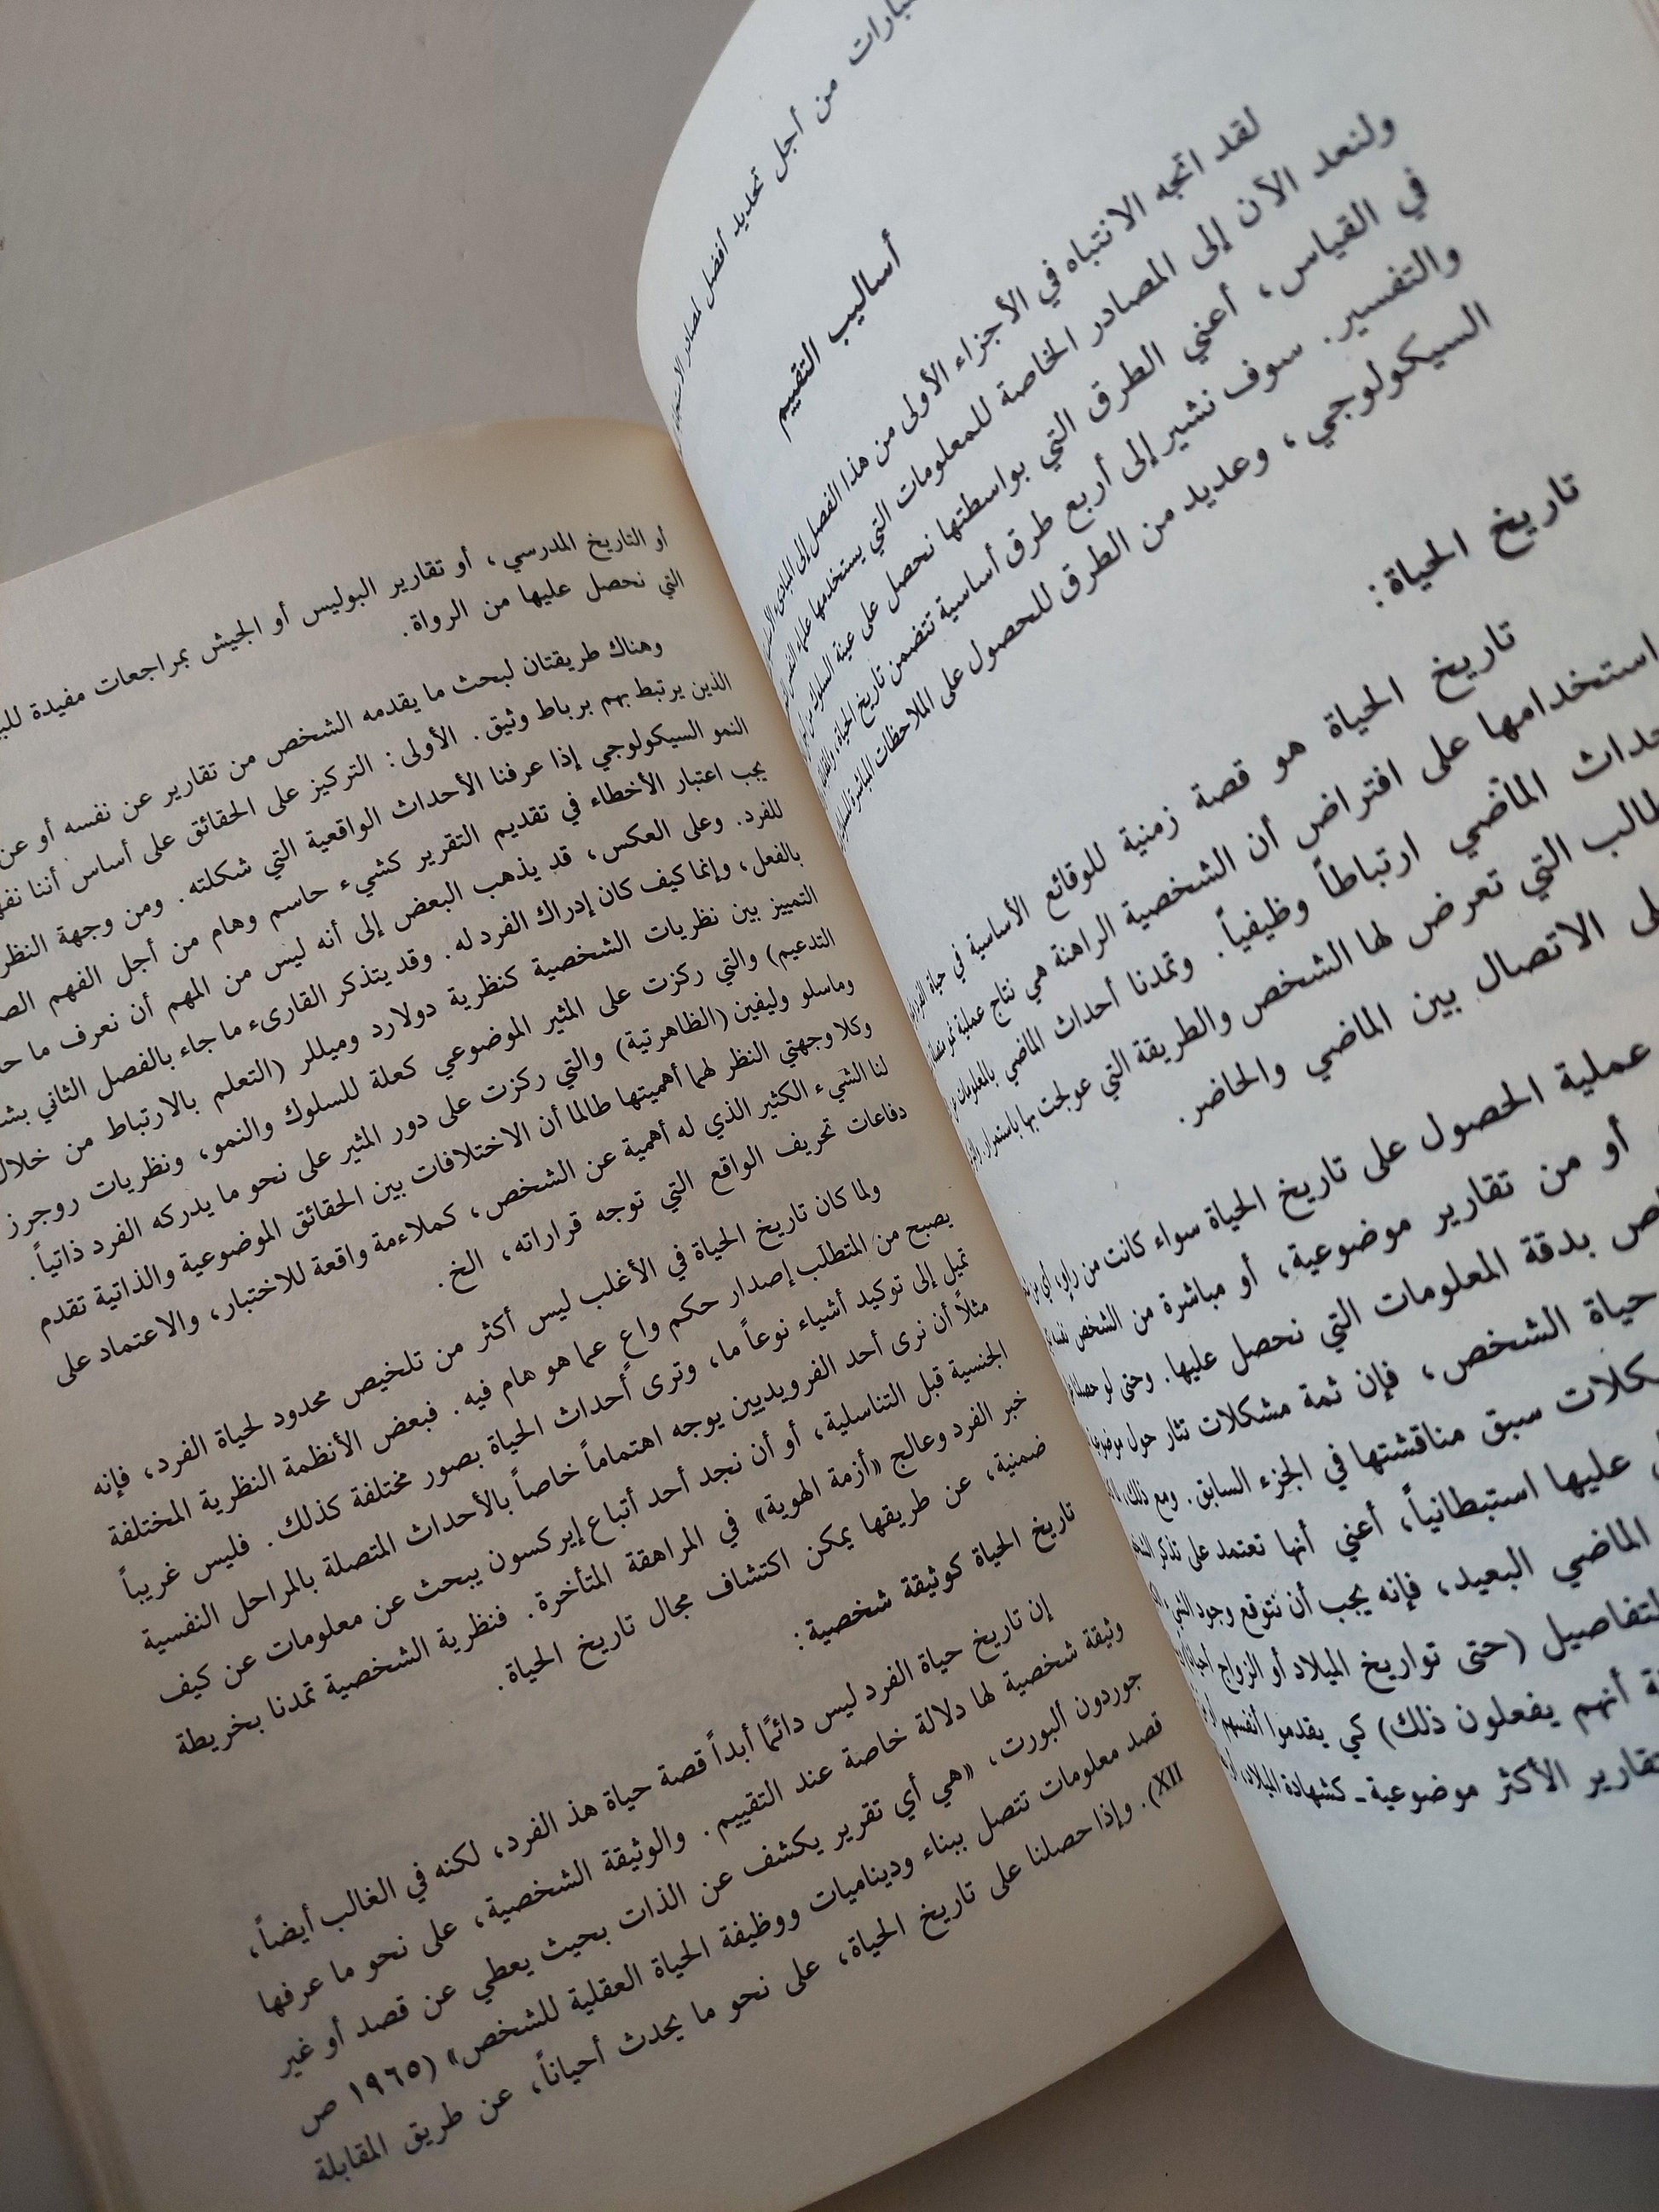 من أجل تحديد أفضل لمصادر
أساليب التقييم
لقد اتجه الانتباه في الأجزاء الأولى من هذا الفصل إلى
ولنعد الآن إلى المصادر الخاصة للمعلومات التي يستخدمها علماء النفس
في القياس، أعني الطرق التي بواسطتها نحصل على عينة السلوك
والتفسير. سوف نشير إلى أربع طرق أساسية تتضمن تاريخ الحياة،
السيكولوجي، وعديد من الطرق للحصول على الملاحظات المباشرة للسلوك
تاريخ الحياة:
تاريخ الحياة هو قصة زمنية للوقائع الأساسية في حياة الفرد
استخدامها على افتراض أن الشخصية الراهنة هي نتاج عملية نمو
الماضي ارتباطاً وظيفياً. وتمدنا أحداث الماضي بالمعلومات
التي تعرض لها الشخص والطريقة التي عولجت بها باستمرار
الاتصال بين الماضي والحاضر.
عملية الحصول على تاريخ الحياة سواء كانت من راوٍ، أي من
أو من تقارير موضوعية، أو مباشرة من الشخص نفسه
بدقة المعلومات التي نحصل عليها. وحتى لو حصلنا
حياة الشخص، فإن ثمة مشكلات تثار حول
سبق مناقشتها في الجزء السابق. ومع ذلك،
عليها استبطانياً، أعني أنها تعتمد على تذكر
الماضي البعيد، فإنه يجب أن نتوقع وجود
(حتى تواريخ الميلاد أو الزواج أحياناً)
أنهم يفعلون ذلك) كي يقدموا أنفسهم
الأكثر موضوعية ـ كشهادة الميلاد،
أو التاريخ المدرسي، أو تقارير البوليس أو الجيش بمراجعات مفيدة
التي نحصل عليها من الرواة.
وهناك طريقتان لبحث ما يقدمه الشخص من تقارير عن نفسه أو عن
الذين يرتبط بهم برباط وثيق. الأولى: التركيز على الحقائق على أساس أننا
النمو السيكولوجي إذا عرفنا الأحداث الواقعية التي شكلته. ومن وجهة النظر
يجب اعتبار الأخطاء في تقديم التقرير كشيء حاسم وهام من أجل الفهم
للفرد. وعلى العكس، قد يذهب البعض إلى أنه ليس من المهم أن نعرف ما
بالفعل، وإنما كيف كان إدراك الفرد له. وقد يتذكر القارىء ما جاء بالفصل الثاني
التمييز بين نظريات الشخصية كنظرية دولارد وميللر (التعلم بالارتباط من خلال
التدعيم) والتي ركزت على المثير الموضوعي كعلة للسلوك والنمو، ونظريات روجرز
وماسلو وليفين (الظاهرتية) والتي ركزت على دور المثير على نحو ما يدركه الفرد ذاتياً.
وكلا وجهتي النظر لهما أهميتها طالما أن الاختلافات بين الحقائق الموضوعية والذاتية تقدم
لنا الشيء الكثير الذي له أهمية عن الشخص، كملاءمة واقعة للاختبار، والاعتماد على
دفاعات تحريف الواقع التي توجه قراراته، الخ.
ولما كان تاريخ الحياة في الأغلب ليس أكثر من تلخيص محدود لحياة الفرد، فإنه
يصبح من المتطلب إصدار حكم واع عما هو هام فيه. فبعض الأنظمة النظرية المختلفة
تميل إلى توكيد أشياء نوعاً ما، وترى أحداث الحياة بصور مختلفة كذلك. فليس غريباً
مثلاً أن نرى أحد الفرويديين يوجه اهتماماً خاصاً بالأحداث المتصلة بالمراحل النفسية
الجنسية قبل التناسلية، أو أن نجد أحد أتباع إيركسون يبحث عن معلومات عن كيف
خبر الفرد وعالج «أزمة الهوية» في المراهقة المتأخرة. فنظرية الشخصية تمدنا بخريطة
ضمنية، عن طريقها يمكن اكتشاف مجال تاريخ الحياة.
تاريخ الحياة كوثيقة شخصية:
إن تاريخ حياة الفرد ليس دائمًا أبداً قصة حياة هذ الفرد، لكنه في الغالب أيضاً،
وثيقة شخصية لها دلالة خاصة عند التقييم. والوثيقة الشخصية، على نحو ما عرفها
جوردون ألبورت، «هي أي تقرير يكشف عن الذات بحيث يعطي عن قصد أو غير
قصد معلومات تتصل ببناء وديناميات ووظيفة الحياة العقلية للشخص» (١٩٦٥ ص
XII). وإذا حصلنا على تاريخ الحياة، على نحو ما يحدث أحياناً، عن طريق المقابلة